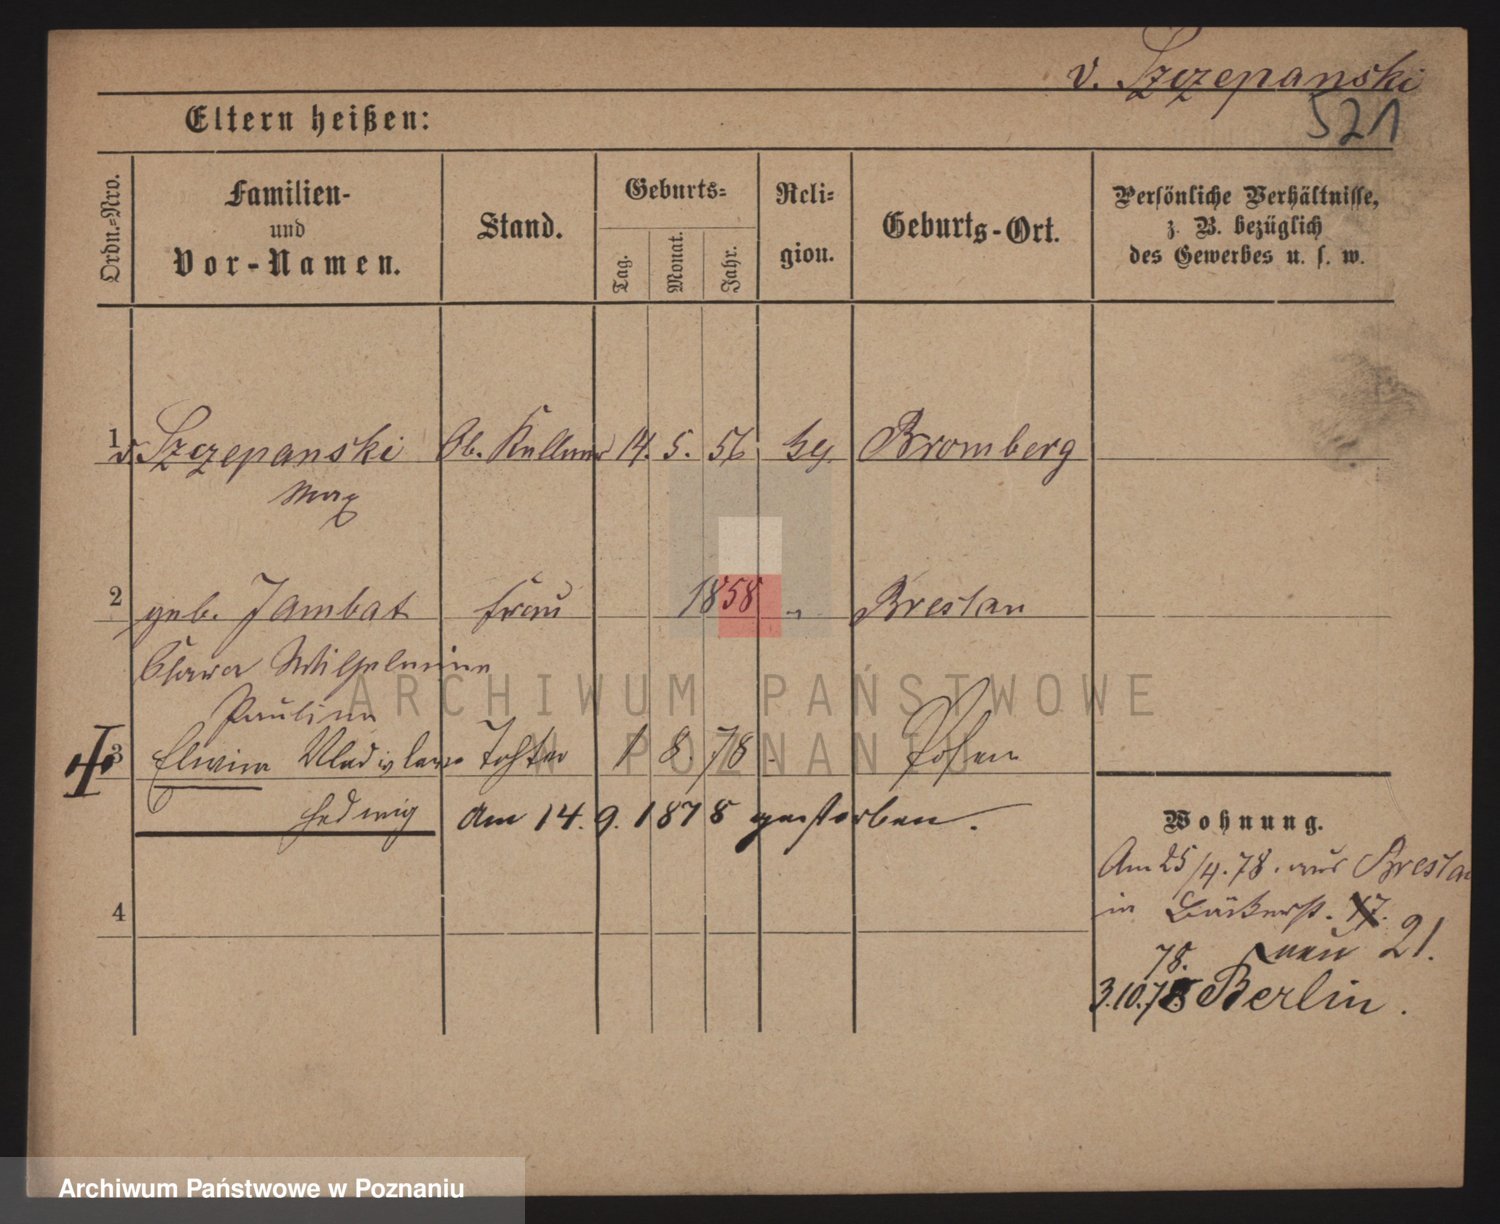 v. Szczepanski
521
Eltern heißen:
Ordn.-Nro.
Familien-
und
Vor-Namen.
Stand.
Geburts-
Tag.
Monat.
Jahr.
Reli-
gion.
Geburts-Ort.
Persönliche Verhältnisse,
z. B. bezüglich
des Gewerbes u. s. w.
1 v. Szczepanski Ob. Kellner 14. 5. 56 Bromberg
Max
2 geb. Jambat Frau 1858 " Breslau
Clara Wilhelmine
Pauline
3 Elwira Wladislawa Tochter 1 8. 78 Posen
Hedwig Am 14. 9. 1878 gestorben.
Wohnung.
Am 25/4. 78. aus Breslau
in Bäckerst. 17.
78. neu 21.
3.10.78 Berlin.
4
ARCHIWUM PAŃSTWOWE
W POZNANIU
Archiwum Państwowe w Poznaniu